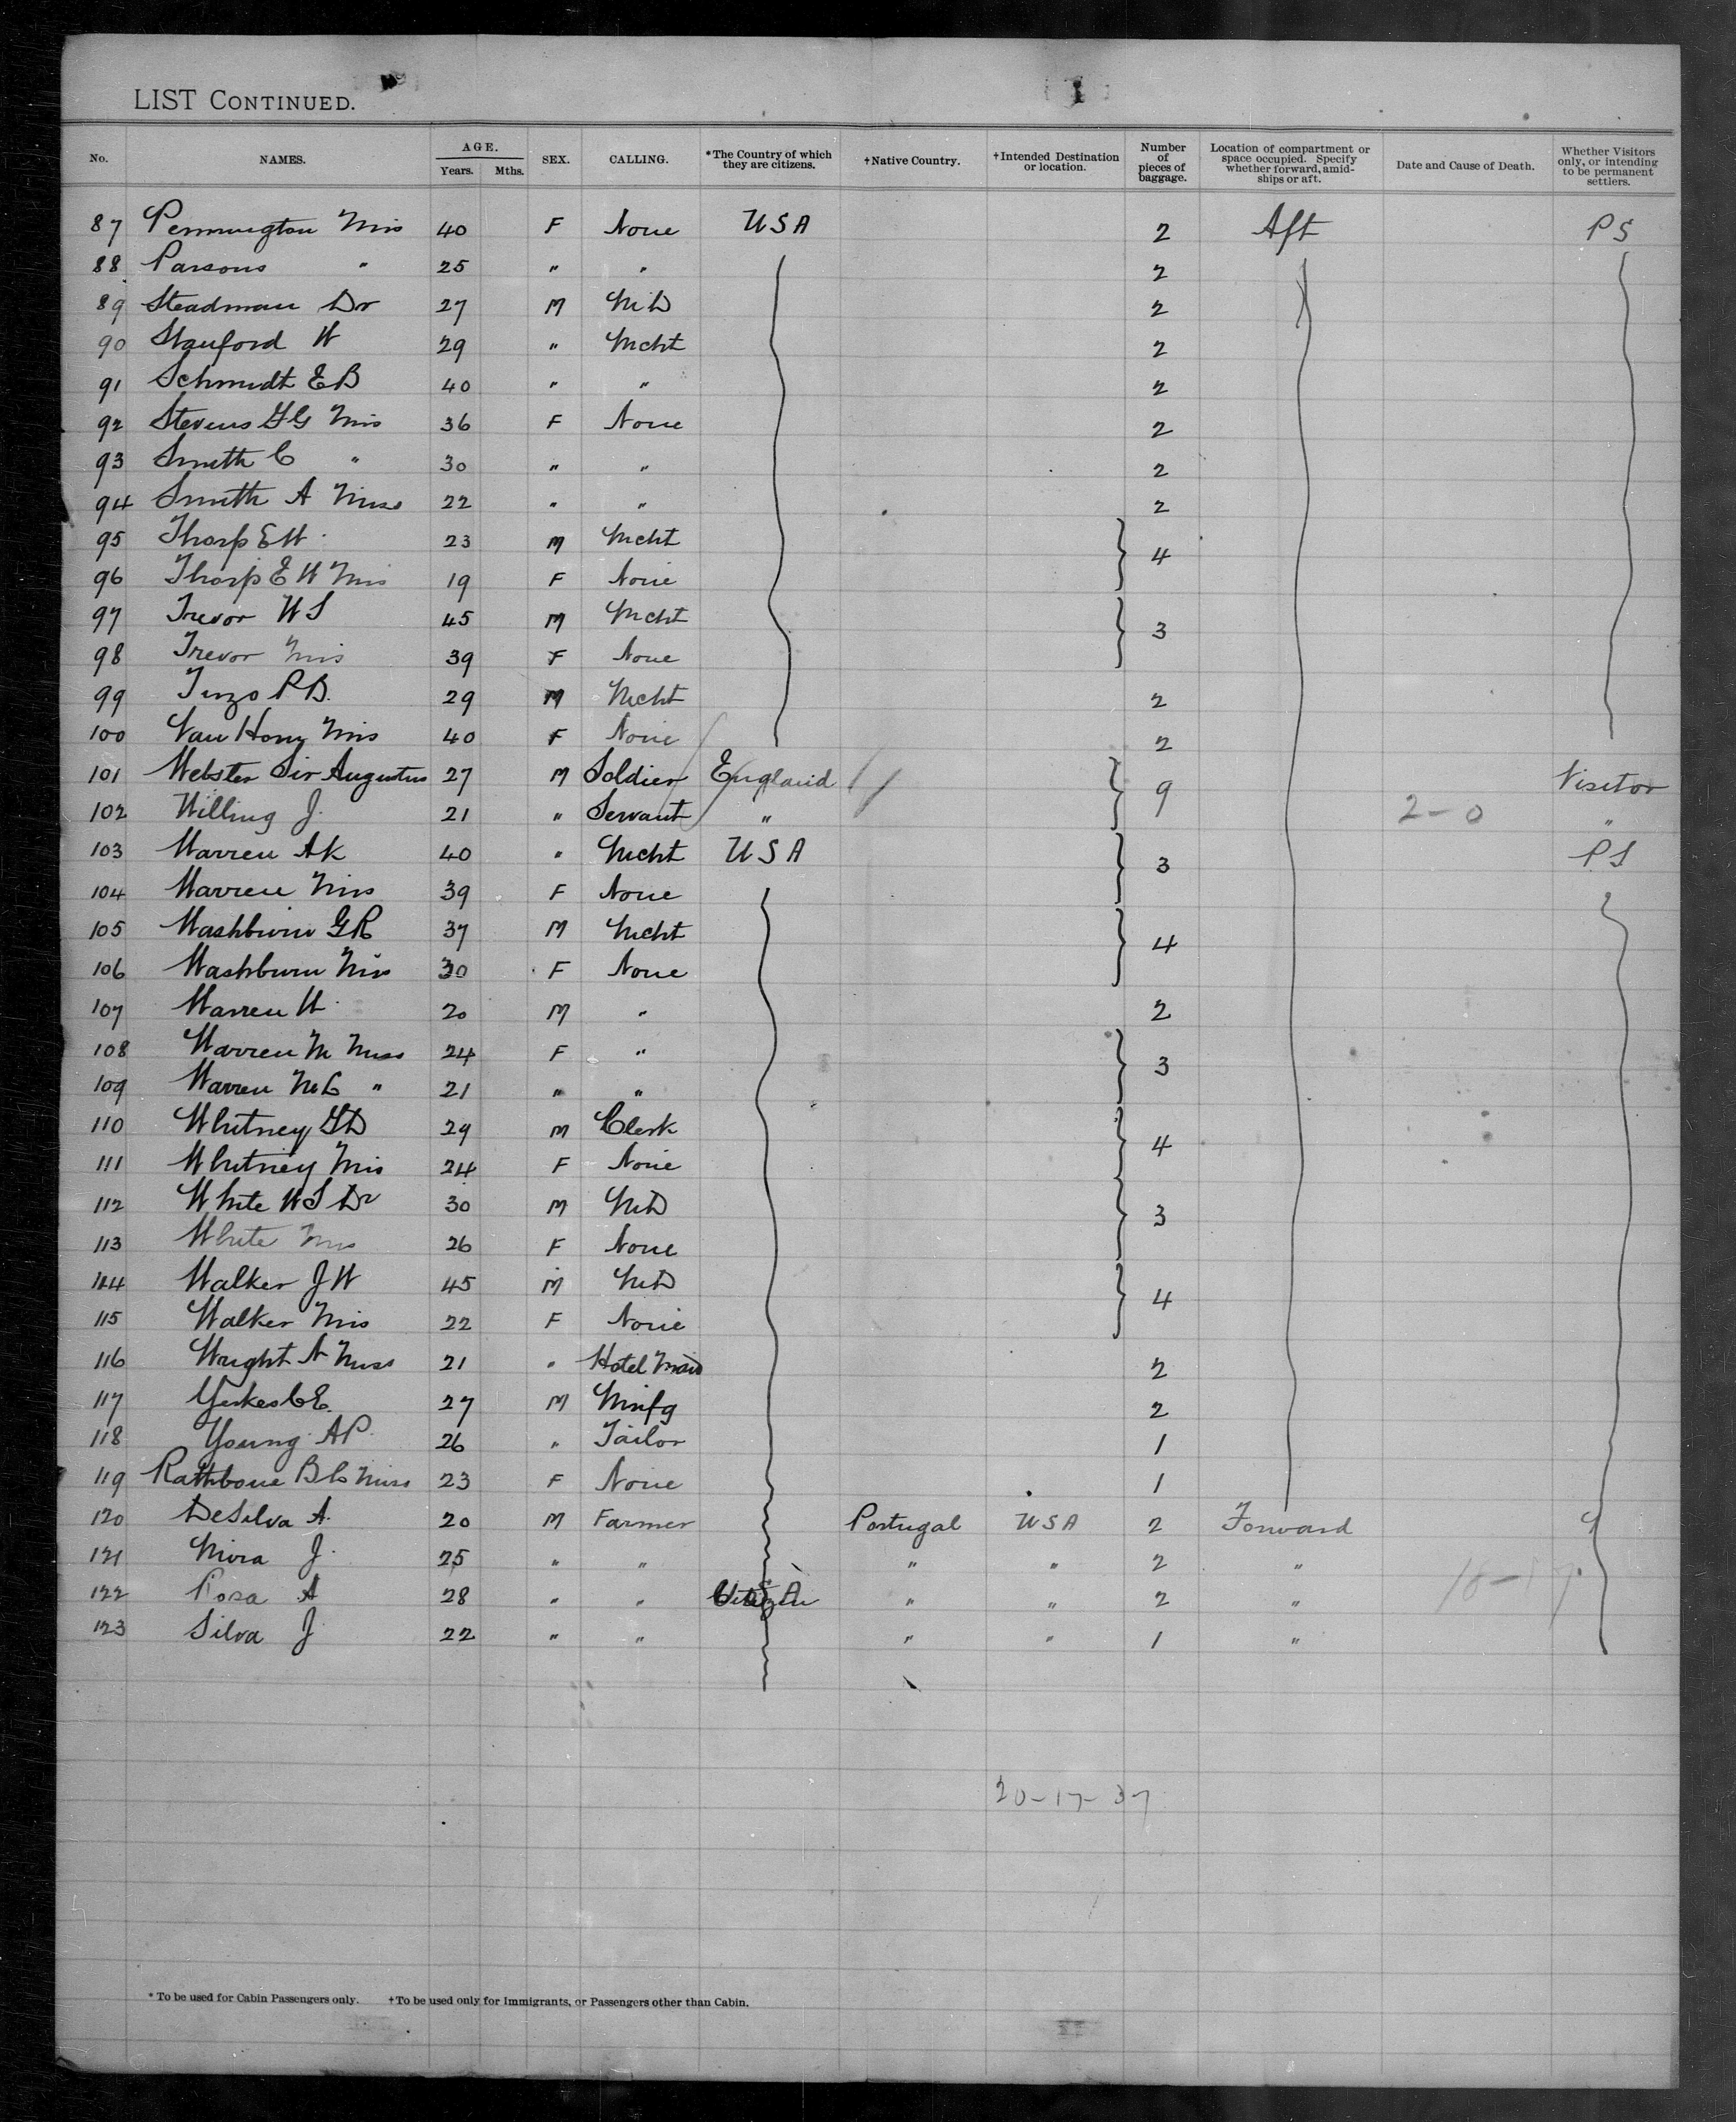 LIST CONTINUED.
No. NAMES. AGE. Years. Mths. SEX. CALLING. *The Country of which they are citizens. †Native Country. †Intended Destination or location. Number of pieces of baggage. Location of compartment or space occupied. Specify whether forward, amidships or aft. Date and Cause of Death. Whether Visitors only, or intending to be permanent settlers.
87 Pennington Mrs 40 F None USA 2 Aft PS
88 Parsons " 25 " " 2
89 Steadman Dr 27 M MD 2
90 Stanford W 29 " Mcht 2
91 Schmidt E B 40 " " 2
92 Stevens Mrs 36 F None 2
93 Smith C " 30 " " 2
94 Smith A Miss 22 " " 2
95 Thorp E W 23 M Mcht 4
96 Thorp E W Mrs 19 F None
97 Trevor W S 45 M Mcht 3
98 Trevor Mrs 39 F None
99 P B. 29 M Mcht 2
100 Van Mrs 40 F None 2
101 Webster Sir Augustus 27 M Soldier England 9 Visitor
102 Willing J. 21 " Servant " 2-0 "
103 Warren A K 40 " Mcht USA 3 PS
104 Warren Mrs 39 F None
105 Washburn G R 37 M Mcht 4
106 Washburn Mrs 30 F None
107 Warren W 20 M " 2
108 Warren M Miss 24 F " 3
109 Warren M C " 21 " "
110 Whitney 29 M Clerk 4
111 Whitney Mrs 24 F None
112 White W S Dr 30 M MD 3
113 White Mrs 26 F None
114 Walker J W 45 M MD 4
115 Walker Mrs 22 F None
116 Wright N Miss 21 " Hotel Maid 2
117 Yerkes C E. 27 M Mnfg 2
118 Young A P. 26 " Tailor 1
119 Rathbone B C Miss 23 F None 1
120 DeSilva A. 20 M Farmer Portugal USA 2 Forward
121 J. 25 " " " " 2 "
122 A 28 " " " " 2 "
123 Silva J 22 " " " " 1 "
20-17-37
* To be used for Cabin Passengers only. †To be used only for Immigrants, or Passengers other than Cabin.